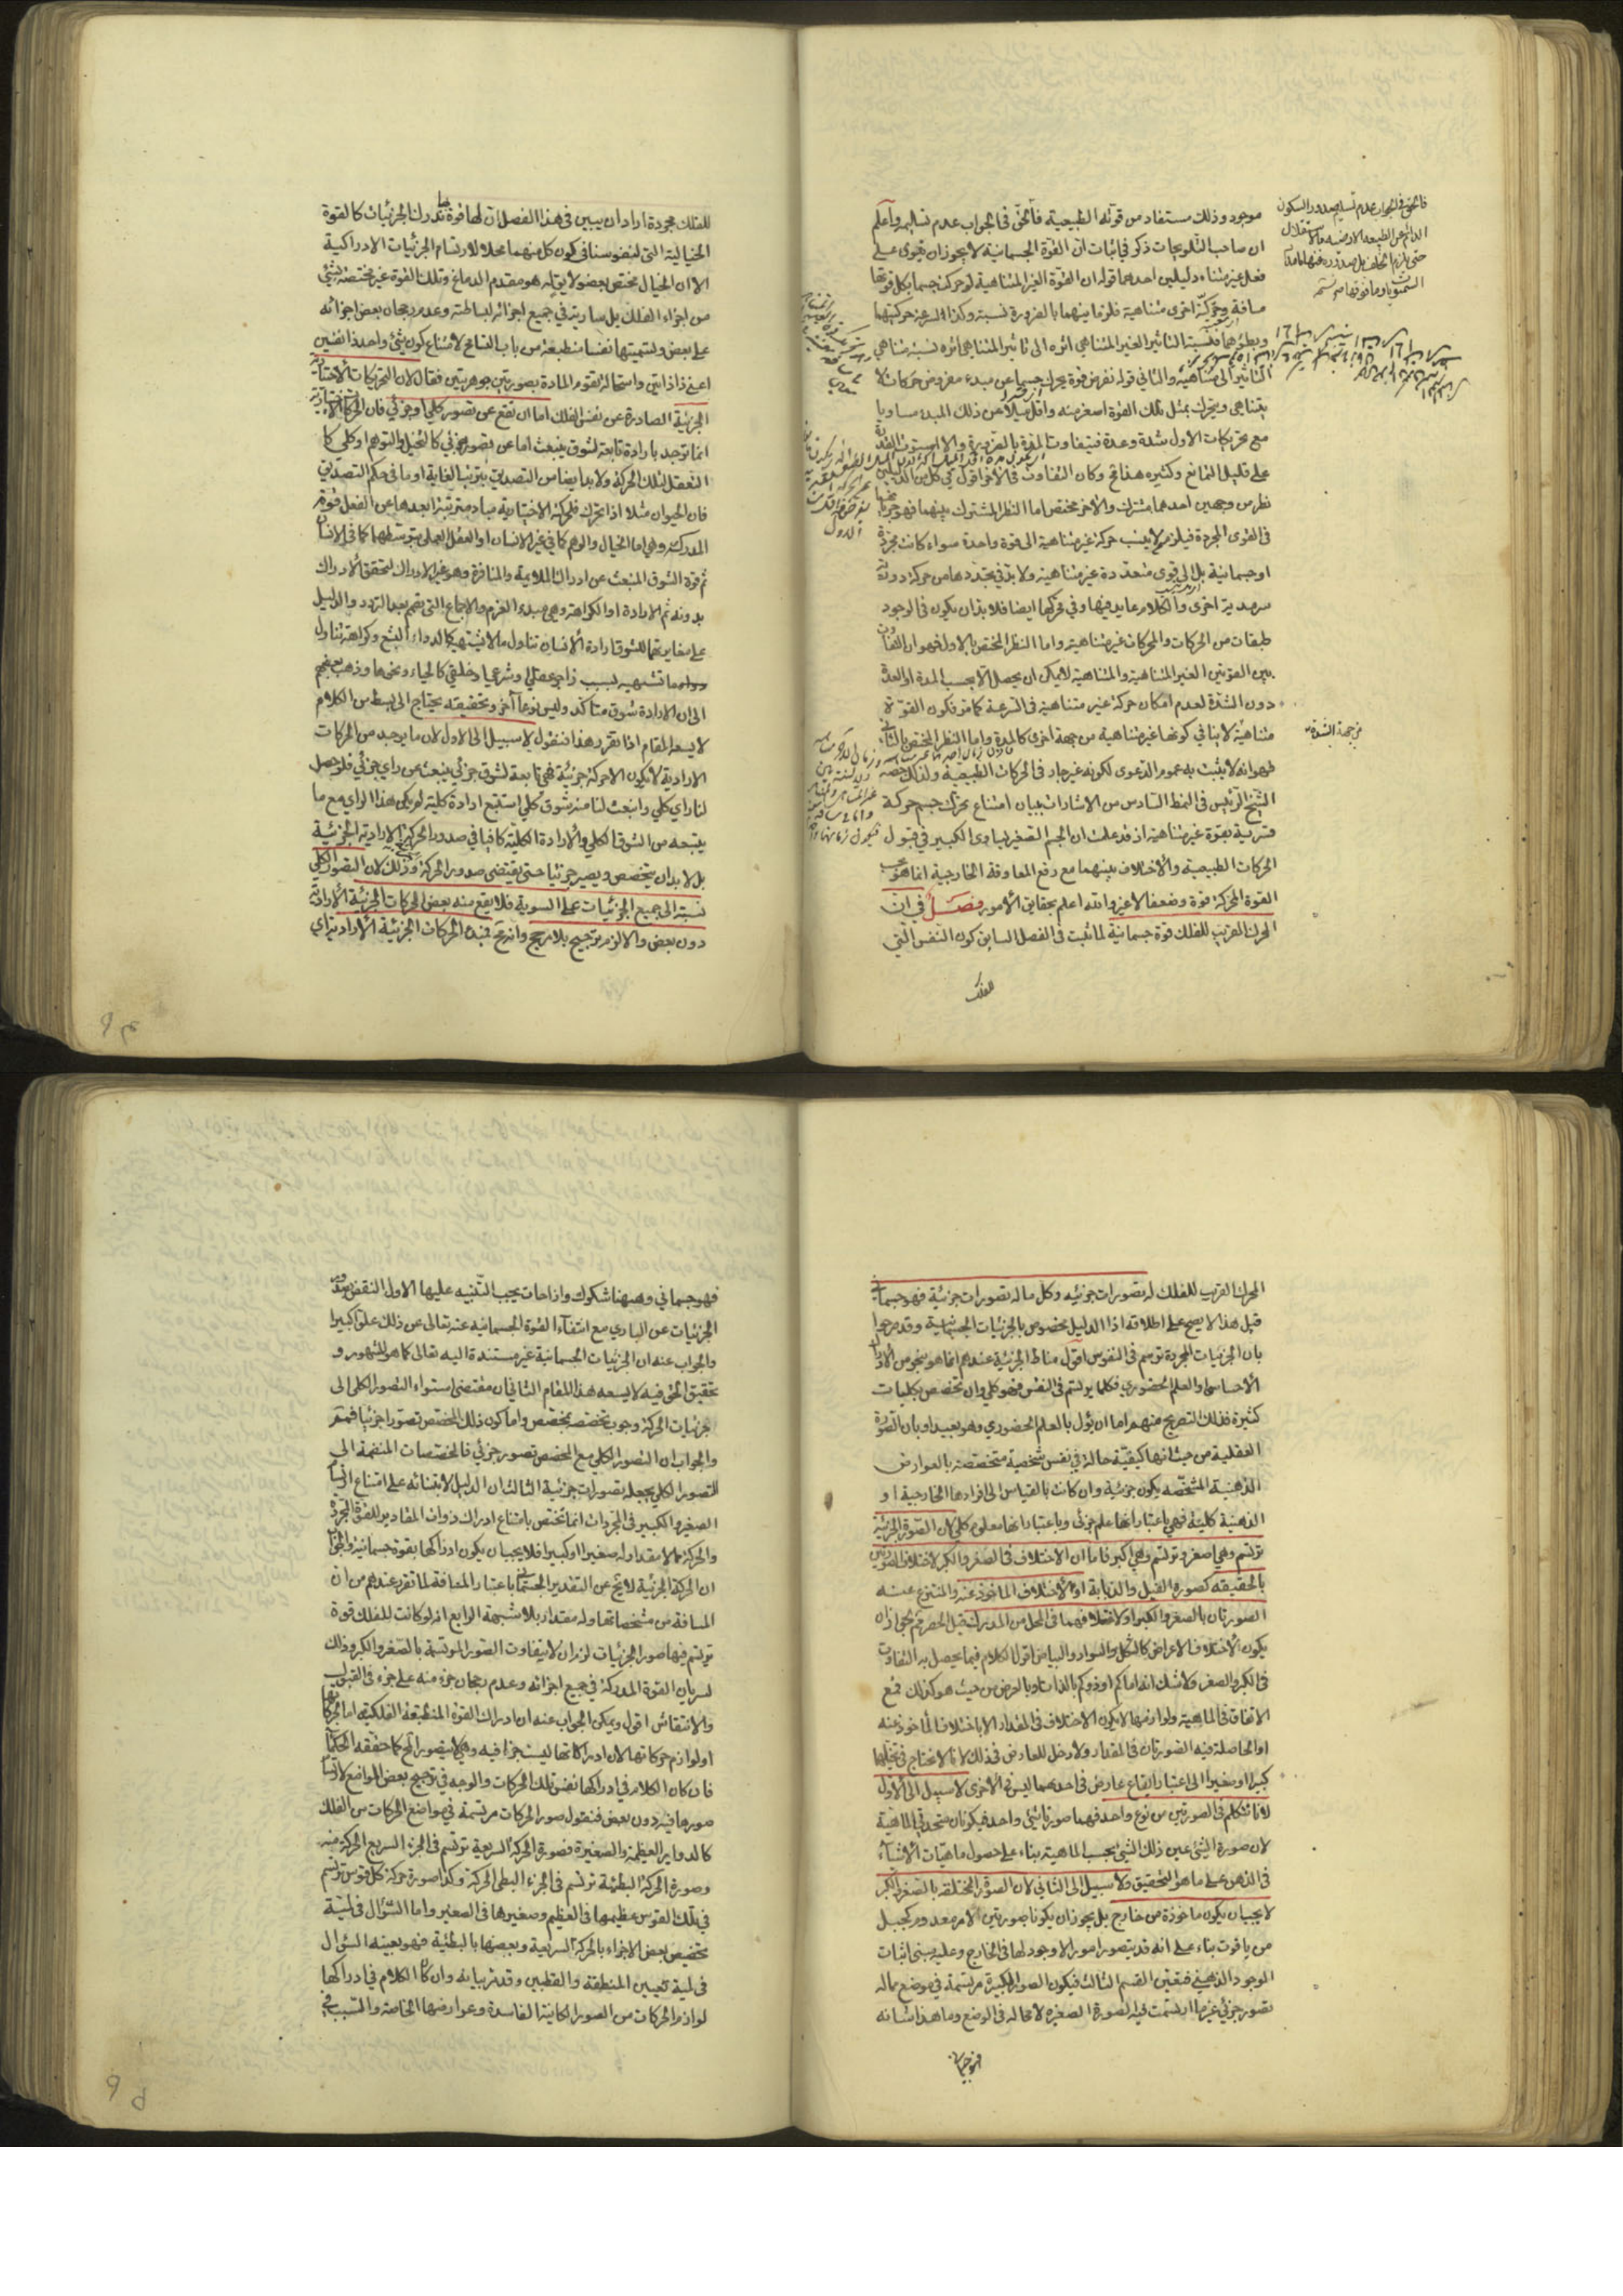 موجود وذلك مستفاد من قوله الطبيعية فالحق في الجواب عدم تسليمه واعلم
ان صاحب التلويحات ذكر في اثبات ان القوة الجسمانية لا يجوز ان تقوى على
فعل غير متناه دليلين احدهما قوله ان القوة الغير المتناهية لو حركت جسما بكل قوتها
مسافة وحركته اخرى متناهية فلزمانيهما بالضرورة نسبة وكذا لسرعة حركتيهما
وبطؤهما فنسبة التاثير الغير المتناهي اثره الى تاثير المتناهي اثره نسبة متناهي
التاثير الى متناهيه والثاني قوله نفرض قوة يحرك جسما من مبدء مفروض حركات لا
يتناهى ويحرك بمثل تلك القوة اصغر منه واقل ميلا من ذلك المبدء مساويا
مع تحريكات الاول شدة وعدة فيتفاوت المدة بالضرورة والا استوت القدرة
على قليل التمانع وكثيره هذا قح وكان التفاوت في الآخر اقول في كل من الدليلين
نظر من وجهين احدهما مشترك والآخر مختص اما النظر المشترك بينهما فهو جريانهما
في القوى المجردة فيلزم ان لا ينسب حركة غير متناهية الى قوة واحدة سواء كانت مجردة
او جسمانية بل الى قوى متعددة غير متناهية ولا بد في تجددها من حركة دورية
سرمدية اخرى والكلام عايد فيها وفي محركها ايضا فلا بد ان يكون في الوجود
طبقات من الحركات والمحركات غير متناهية واما النظر المختص بالاول فهو ان التفاوت
بين القوتين الغير المتناهية والمتناهية لا يمكن ان يحصل الا بحسب المدة او العدة
دون الشدة لعدم امكان حركة غير متناهية في السرعة كما مر فكون القوة
متناهية لا ينافي كونها غير متناهية من جهة اخرى كالمدة واما النظر المختص بالثاني
فهو انه لا يثبت به عموم الدعوى لكونه غير جار في الحركات الطبيعية ولذلك خصه
الشيخ الرئيس في النمط السادس من الاشارات ببيان امتناع تحرك جسم حركة
قسرية بقوة غير متناهية اذ قد علمت ان الجسم الصغير يساوى الكبير في قبول
الحركات الطبيعية والاختلاف بينهما مع رفع المعاوقة الخارجية انما هو بحسب
القوة المحركة قوة وضعفا لا غير والله اعلم بحقايق الامور فصل في ان
المحرك القريب للفلك قوة جسمانية لما ثبت في الفصل السابق كون النفس التي
للفلك
من جهة الشدة
للفلك مجردة اراد ان يبين في هذا الفصل ان لها قوة بها تدرك الجزئيات كالقوة
الخيالية التي لنفوسنا في كون كل منهما محلا لارتسام الجزئيات الادراكية
الا ان الخيال مختص بعضو لا يقابله هو مقدم الدماغ وتلك القوة غير مختصة بشئ
من اجزاء الفلك بل سارية في جميع اجزائه لبساطته وعدم رجحان بعض اجزائه
على بعض وتسميتها نفسا منطبعة من باب التسامح لامتناع كون شئ واحد ذا نفسين
اعني ذا ذاتين واستحالة تقوم المادة بصورتين جوهريتين فقال لان التحريكات الاختيارية
الجزئية الصادرة عن نفس الفلك اما ان تقع عن تصور كلي او جزئي فان الحركات الارادية
انما توجد بارادة تابعة لشوق ينبعث اما عن تصور جزئي كالتخيل والتوهم او كلي كا
لتعقل لتلك الحركة ولا بد ايضا من التصديق بترتب الغاية او ما في حكم التصديق
فان الحيوان مثلا اذا تحرك فلحركته الاختيارية مباد مترتبة ابعدها عن الفعل قوة
المدركة وهي اما الخيال والوهم كما في غير الانسان او العقل العملي بتوسطهما كما في الانسان
ثم قوة الشوق المنبعث عن ادراك الملايمة والمنافرة وهو غير الادراك لتحقق الادراك
بدونه ثم الارادة او الكراهة وهي مبدء العزم والاجماع التي تصمم بعد التردد والدليل
على مغايرتها للشوق ارادة الانسان تناول ما لا يشتهيه كالدواء البشع وكراهة تناول
ما تشتهيه لسبب زاجر عقلي او شرعي او خلقي كالحياء ونحوها وذهب بعضهم
الى ان الارادة شوق متاكد وليس نوعا آخر وتحقيقه يحتاج الى بسط من الكلام
لا يسعه المقام اذا تقرر هذا فنقول لا سبيل الى الاول لان ما يوجد من الحركات
الارادية لا يكون الا حركة جزئية فهي تابعة لشوق جزئي ينبعث عن راي جزئي فلو حصل
لنا راي كلي وانبعث لنا منه شوق كلي استتبع ارادة كلية لم يكن هذا الراي مع ما
يتبعه من الشوق الكلي والارادة الكلية كافيا في صدور الحركة الارادية الجزئية
بل لا بد ان يتخصص ويصير جزئيا حتى يقتضي صدور الحركة وذلك لان التصور الكلي
نسبته الى جميع الجزئيات على السوية فلا يقع منه بعض الحركات الجزئية الارادية
دون بعض والا لزم ترجيح بلا مرجح وانه مح فمبدء الحركات الجزئية الارادية اي
المحرك القريب للفلك له تصورات جزئيه وكل ما له تصورات جزئية فهو جسماني
قيل هذا لا يصح على اطلاقه اذ الدليل مخصوص بالجزئيات الجسمانية وقد صرحوا
بان الجزئيات المجردة ترسم في النفوس اقول مناط الجزئية عندهم انما هو بنحو من الادراك
الاحساسي او العلم الحضوري فكلما يرتسم في النفس فهو كلي وان تخصص بكليات
كثيرة فذلك التصريح منهم اما ان يؤل بالعلم الحضوري وهو بعيد او بان الصورة
العقلية من حيث انها كيفية حالة في نفس شخصية متخصصة بالعوارض
الذهنية المشخصة يكون جزئية وان كانت بالقياس الى افرادها الخارجية او
الذهنية كلية فهي باعتبار انها علم جزئي وباعتبار انها معلوم كلي لان الصورة الجزئية
ترتسم وهي اصغر وترتسم وهي اكبر فاما ان الاختلاف في الصغر والكبر لاختلاف الصورتين
بالحقيقة كصورة الفيل والذبابة او لاختلاف الماخوذ عنه والمنتزع عنه
الصورتان بالصغر والكبر او لاختلافهما في المحل من المدرك قيل الحصر مم لجواز ان
يكون الاختلاف لاعراض كالشكل والسواد والبياض اقول الكلام فيما يحصل به التفاوت
في الكبر والصغر ولا شك انه اما كم او ذو كم بالذات او بالعرض من حيث هو كذلك فمع
الاتفاق في الماهية ولوازمها لا يكون الاختلاف في المقدار الا باختلاف الماخوذ عنه
او الحاصلة فيه الصورتان في المقدار ولا دخل للعارض في ذلك لانا لا نحتاج في تخيلها
كبيرا او صغيرا الى اعتبار ايقاع عارض في احدهما ليس في الاخرى لا سبيل الى الاول
لانا نتكلم في الصورتين من نوع واحد فهما صورتا شئ واحد فيكونان متحدتي الماهية
لان صورة الشئ عين ذلك الشئ بحسب الماهية بناء على حصول ماهيات الاشياء
في الذهن على ما هو التحقيق ولا سبيل الى الثاني لان الصورة المختلفة بالصغر والكبر
لا يجب ان يكون ماخوذة من خارج بل يجوز ان يكونا صورتين لامر معدوم كجبل
من ياقوت بناء على انه قد يتصور امور لا وجود لها في الخارج وعليه يبنى اثبات
الوجود الذهني فتعين القسم الثالث فيكون الصورة الكبيرة مرتسمة في موضع مما له
تصور جزئي غير ما ارتسمت فيه الصورة الصغيرة لا محالة في الوضع وما هذا شانه
فهو جسماني
فهو جسماني وههنا شكوك وازاحات يجب التنبيه عليها الاول النقض
الجزئيات عن الباري مع انتفاء القوة الجسمانيه عنه تعالى عن ذلك علوا كبيرا
والجواب عنه ان الجزئيات الجسمانية غير مستندة اليه تعالى كما هو المشهور و
تحقيق الحق فيه لا يسعه هذا المقام الثاني ان مقتضى استواء التصور الكلي الى
جزئيات الحركة وجوب تخصصه بمخصص واما كون ذلك المخصص تصورا جزئيا فمم
والجواب ان التصور الكلي مع المخصص تصور جزئي فالمخصصات المنضمة الى
التصور الكلي يجعله تصورات جزئية الثالث ان الدليل لابتنائه على امتناع ارتسام
الصغير والكبير في المجردات انما تختص بامتناع ادراك ذوات المقادير للقوة المجردة
والحركة مما لا مقدار له صغيرا او كبيرا فلا يجب ان يكون ادراكها بقوة جسمانية والجواب
ان الحركة الجزئية لا تخ عن التقدير الجسماني باعتبار المسافة لما تقرر عندهم من ان
المسافة من مشخصاتها وله مقدار بلا شبهة الرابع انه لو كانت للفلك قوة
ترتسم فيها صور الجزئيات لزم ان لا يتفاوت الصور المرتسمة بالصغر والكبر وذلك
لسريان القوة المدركة في جميع اجزائه وعدم رجحان جزء منه على جزء في القبول
والانتقاش اقول ويمكن الجواب عنه ان ادراك القوة المنطبعة الفلكية اما لحركاتها
او لوازم حركاتها لان ادراكاتها ليست جزافيه
فان كان الكلام في ادراكها نفس تلك الحركات والوجه في ترجيح بعض المواضع لارتسام
صورها فيه دون بعض فنقول صور الحركات مرتسمة في مواضع الحركات من الفلك
كالدواير العظيمة والصغيرة فصورة الحركة السريعة ترتسم في الجزء السريع الحركة منه
وصورة الحركة البطيئة ترتسم في الجزء البطئ الحركة وكذا صورة حركة كل قوس ترتسم
في تلك القوس عظيمها في العظيم وصغيرها في الصغير واما السؤال في لمية
تخصيص بعض الاجزاء بالحركة السريعة وبعضها بالبطيئة فهو بعينه السؤال
في لمية تعيين المنطقة والقطبين وقد مر بيانه وان كان الكلام في ادراكها
لوازم الحركات من الصور الكاينة الفاسدة وعوارضها الخاصة والسبب في